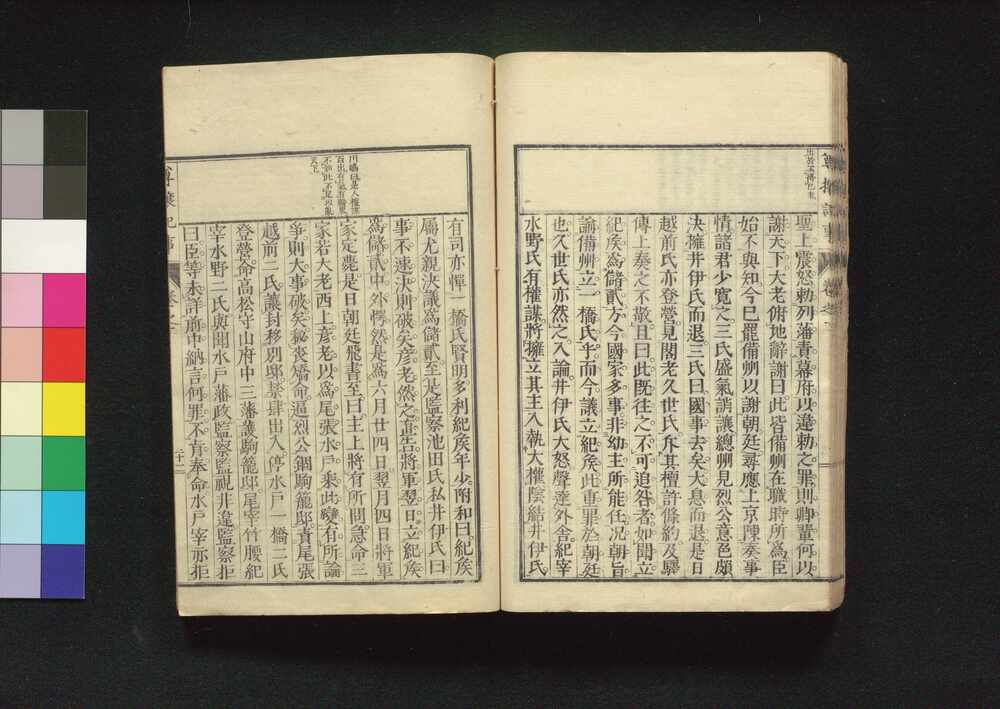 聖上震怒勅列藩責幕府以違勅之罪則卿輩何以
謝天下大老俯地辭謝曰此皆備州在職時所爲臣
始不與知今已罷備州以謝朝廷尋應上京陳奏事
情請君少寛之三氏盛氣誚讓總州見烈公意色頗
決擁井伊氏而退三氏曰國事去矣大息而退是日
越前氏亦登營見閣老久世氏斥其擅許條約及驛
傳上奏之不敬且曰此既往之不可追咎者如聞立
紀矦爲儲貳方今國家多事非幼主所能任况朝旨
諭備州立一橋氏乎而今議立紀矦此重罪於朝廷
也久世氏亦然之入論井伊氏大怒聲達外舍紀宰
水野氏有權謀將擁立其主入執大權陰結井伊氏
有司亦憚一橋氏賢明多利紀矦年少附和曰紀矦
屬尤親決議爲儲貳至是監察池田氏私井伊氏曰
事不速決則破矣彦老然之奮告將軍翌日立紀矦
爲儲貳中外愕然是爲六月廿四日翌月四日將軍
家定薨是日朝廷飛書至曰主上將有所問急命三
家若大老西上彦老以爲尾張水戸乘此變有所論
爭則大事破矣秘喪矯命逼烈公錮駒籠邸責尾張
越前二氏議封移別邸禁肆出入停水戸一橋二氏
登營命高松守山府中三藩護駒籠邸尾宰竹腰紀
宰水野二氏輿聞水戸藩政監察監視非違監察拒
曰臣等未詳前中納言何罪不肯奉命水戸宰亦拒
尊攘紀事
卷之
二十二